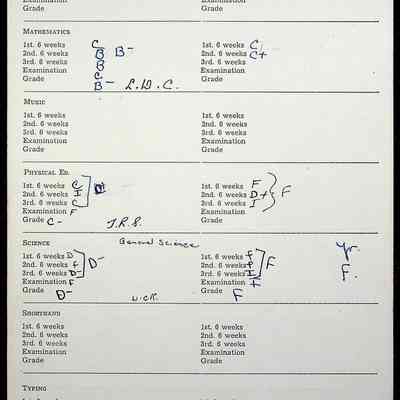 Examination
Grade Grade
MATHEMATICS
1st. 6 weeks C 1st. 6 weeks C
2nd. 6 weeks B B- 2nd. 6 weeks C+
3rd. 6 weeks B 3rd. 6 weeks
Examination C Examination
Grade B- L.D.C. Grade
MUSIC
1st. 6 weeks 1st. 6 weeks
2nd. 6 weeks 2nd. 6 weeks
3rd. 6 weeks 3rd. 6 weeks
Examination Examination
Grade Grade
PHYSICAL ED.
1st. 6 weeks C 1st. 6 weeks F
2nd. 6 weeks I 2nd. 6 weeks D+ F
3rd. 6 weeks C 3rd. 6 weeks I
Examination F Examination
Grade C- J.R.S. Grade
SCIENCE General Science Yr.
1st. 6 weeks D 1st. 6 weeks F
2nd. 6 weeks F D- 2nd. 6 weeks F F F.
3rd. 6 weeks D- 3rd. 6 weeks I
Examination F Examination F
Grade D- Grade F
SHORTHAND
1st. 6 weeks 1st. 6 weeks
2nd. 6 weeks 2nd. 6 weeks
3rd. 6 weeks 3rd. 6 weeks
Examination Examination
Grade Grade
TYPING